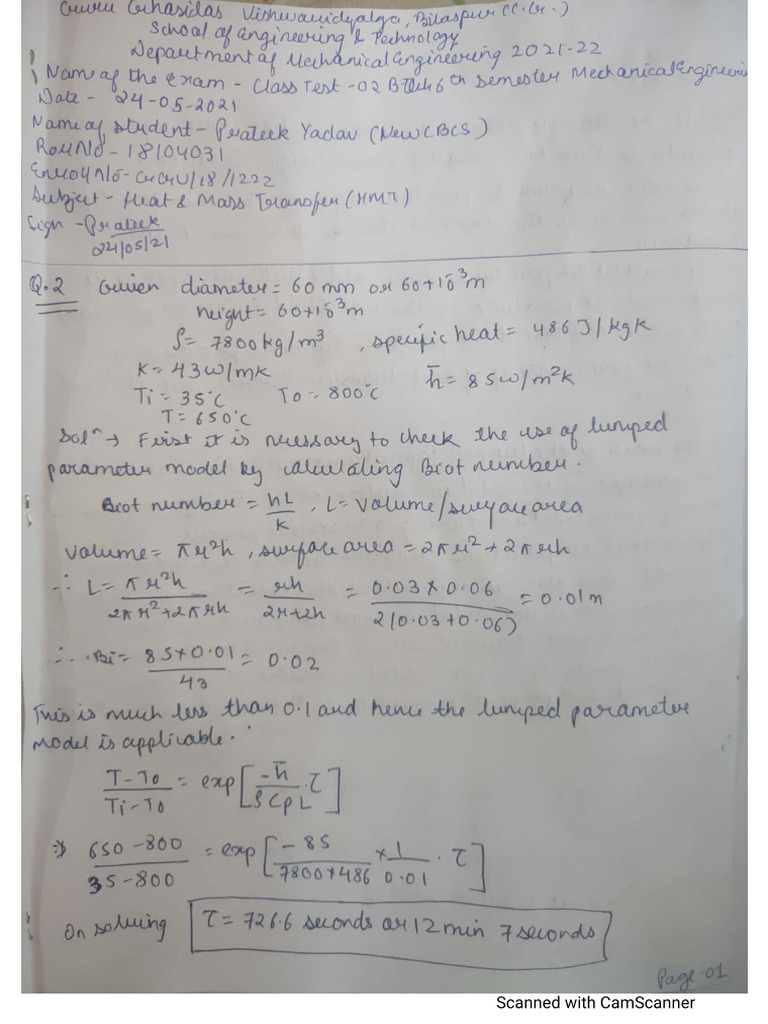 Guru Ghasidas Vishwavidyalya, Bilaspur (C.G.)
School of Engineering & Technology
Department of Mechanical Engineering 2021-22
Name of the Exam - Class Test -02 BTech 6th Semester Mechanical Engineering
Date - 24-05-2021
Name of Student - Prateek Yadav (New CBCS)
Roll No - 18104031
Enroll No - GGV/18/1222
Subject - Heat & Mass Transfer (HMT)
Sign - Prateek
24/05/21
Q.2 Given diameter = 60 mm or 60*10⁻³m
height = 60*10⁻³m
ρ = 7800 kg/m³ , specific heat = 486 J/kgK
K = 43 W/mK
Ti = 35°C To = 800°C h̄ = 85 W/m²K
T = 650°C
Solⁿ → First it is necessary to check the use of lumped
parameter model by calculating Biot number.
Biot number = hL/K , L = Volume/surface area
Volume = πr²h , surface area = 2πr² + 2πrh
∴ L = πr²h/(2πr²+2πrh) = rh/(2r+2h) = 0.03 × 0.06/2(0.03+0.06) = 0.01m
∴ Bi = 85*0.01/43 = 0.02
This is much less than 0.1 and hence the lumped parameter
model is applicable.
(T-To)/(Ti-To) = exp[-h̄/(ρ Cp L) . τ]
⇒ (650-800)/(35-800) = exp[-85/(7800*486) * 1/0.01 . τ]
On solving τ = 726.6 seconds or 12 min 7 seconds
Page-01
Scanned with CamScanner